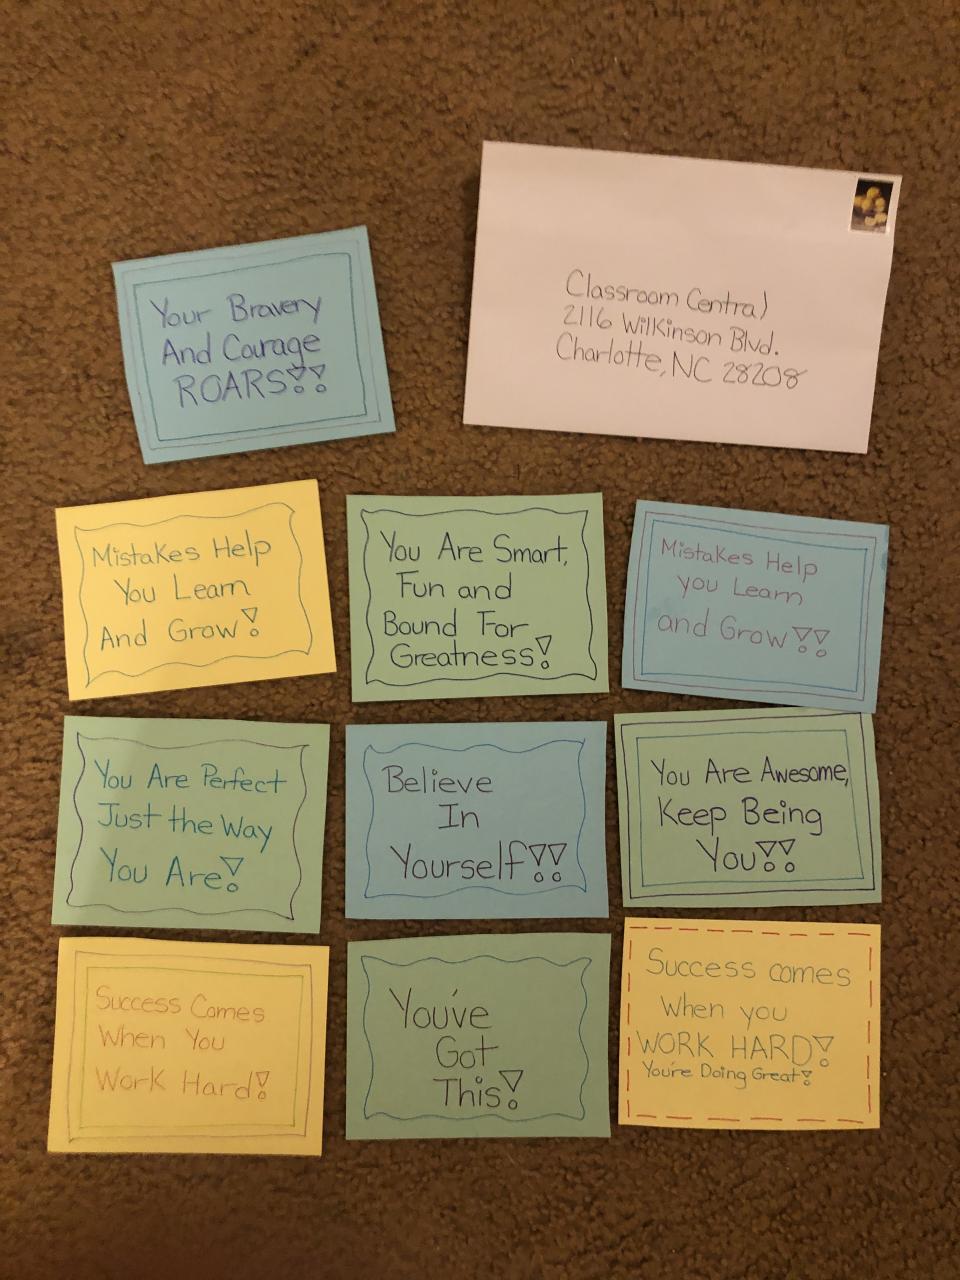 Your Bravery
And Courage
ROARS!!
Classroom Central
2116 Wilkinson Blvd.
Charlotte, NC 28208
Mistakes Help
You Learn
And Grow!
You Are Smart,
Fun and
Bound For
Greatness!
Mistakes Help
you Learn
and Grow!!
You Are Perfect
Just the Way
You Are!
Believe
In
Yourself!!
You Are Awesome,
Keep Being
You!!
Success Comes
When You
Work Hard!
You've
Got
This!
Success comes
When you
WORK HARD!
You're Doing Great!